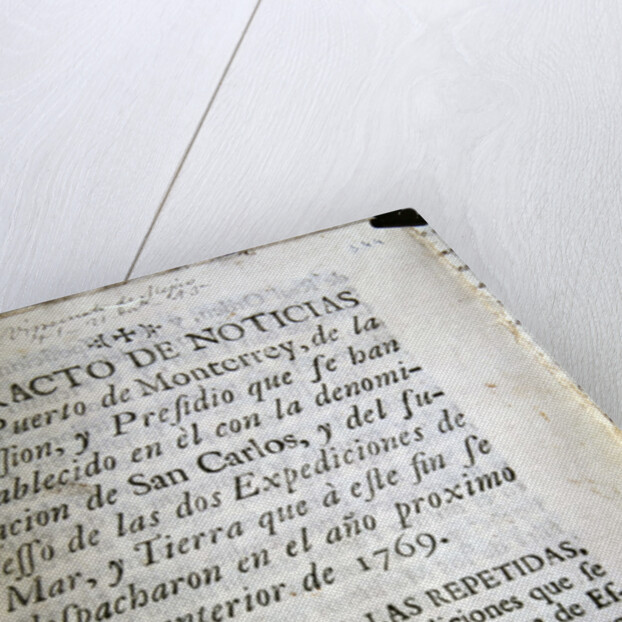 344
RACTO DE NOTICIAS
Puerto de Monterrey, de la
ſſion, y Preſidio que ſe han
ablecido en èl con la denomi-
acion de San Carlos, y del ſu-
eſſo de las dos Expediciones de
Mar, y Tierra que à eſte fin ſe
deſpacharon en el año proximo
anterior de 1769.
LAS REPETIDAS,
diciones que ſe
de Eſ-